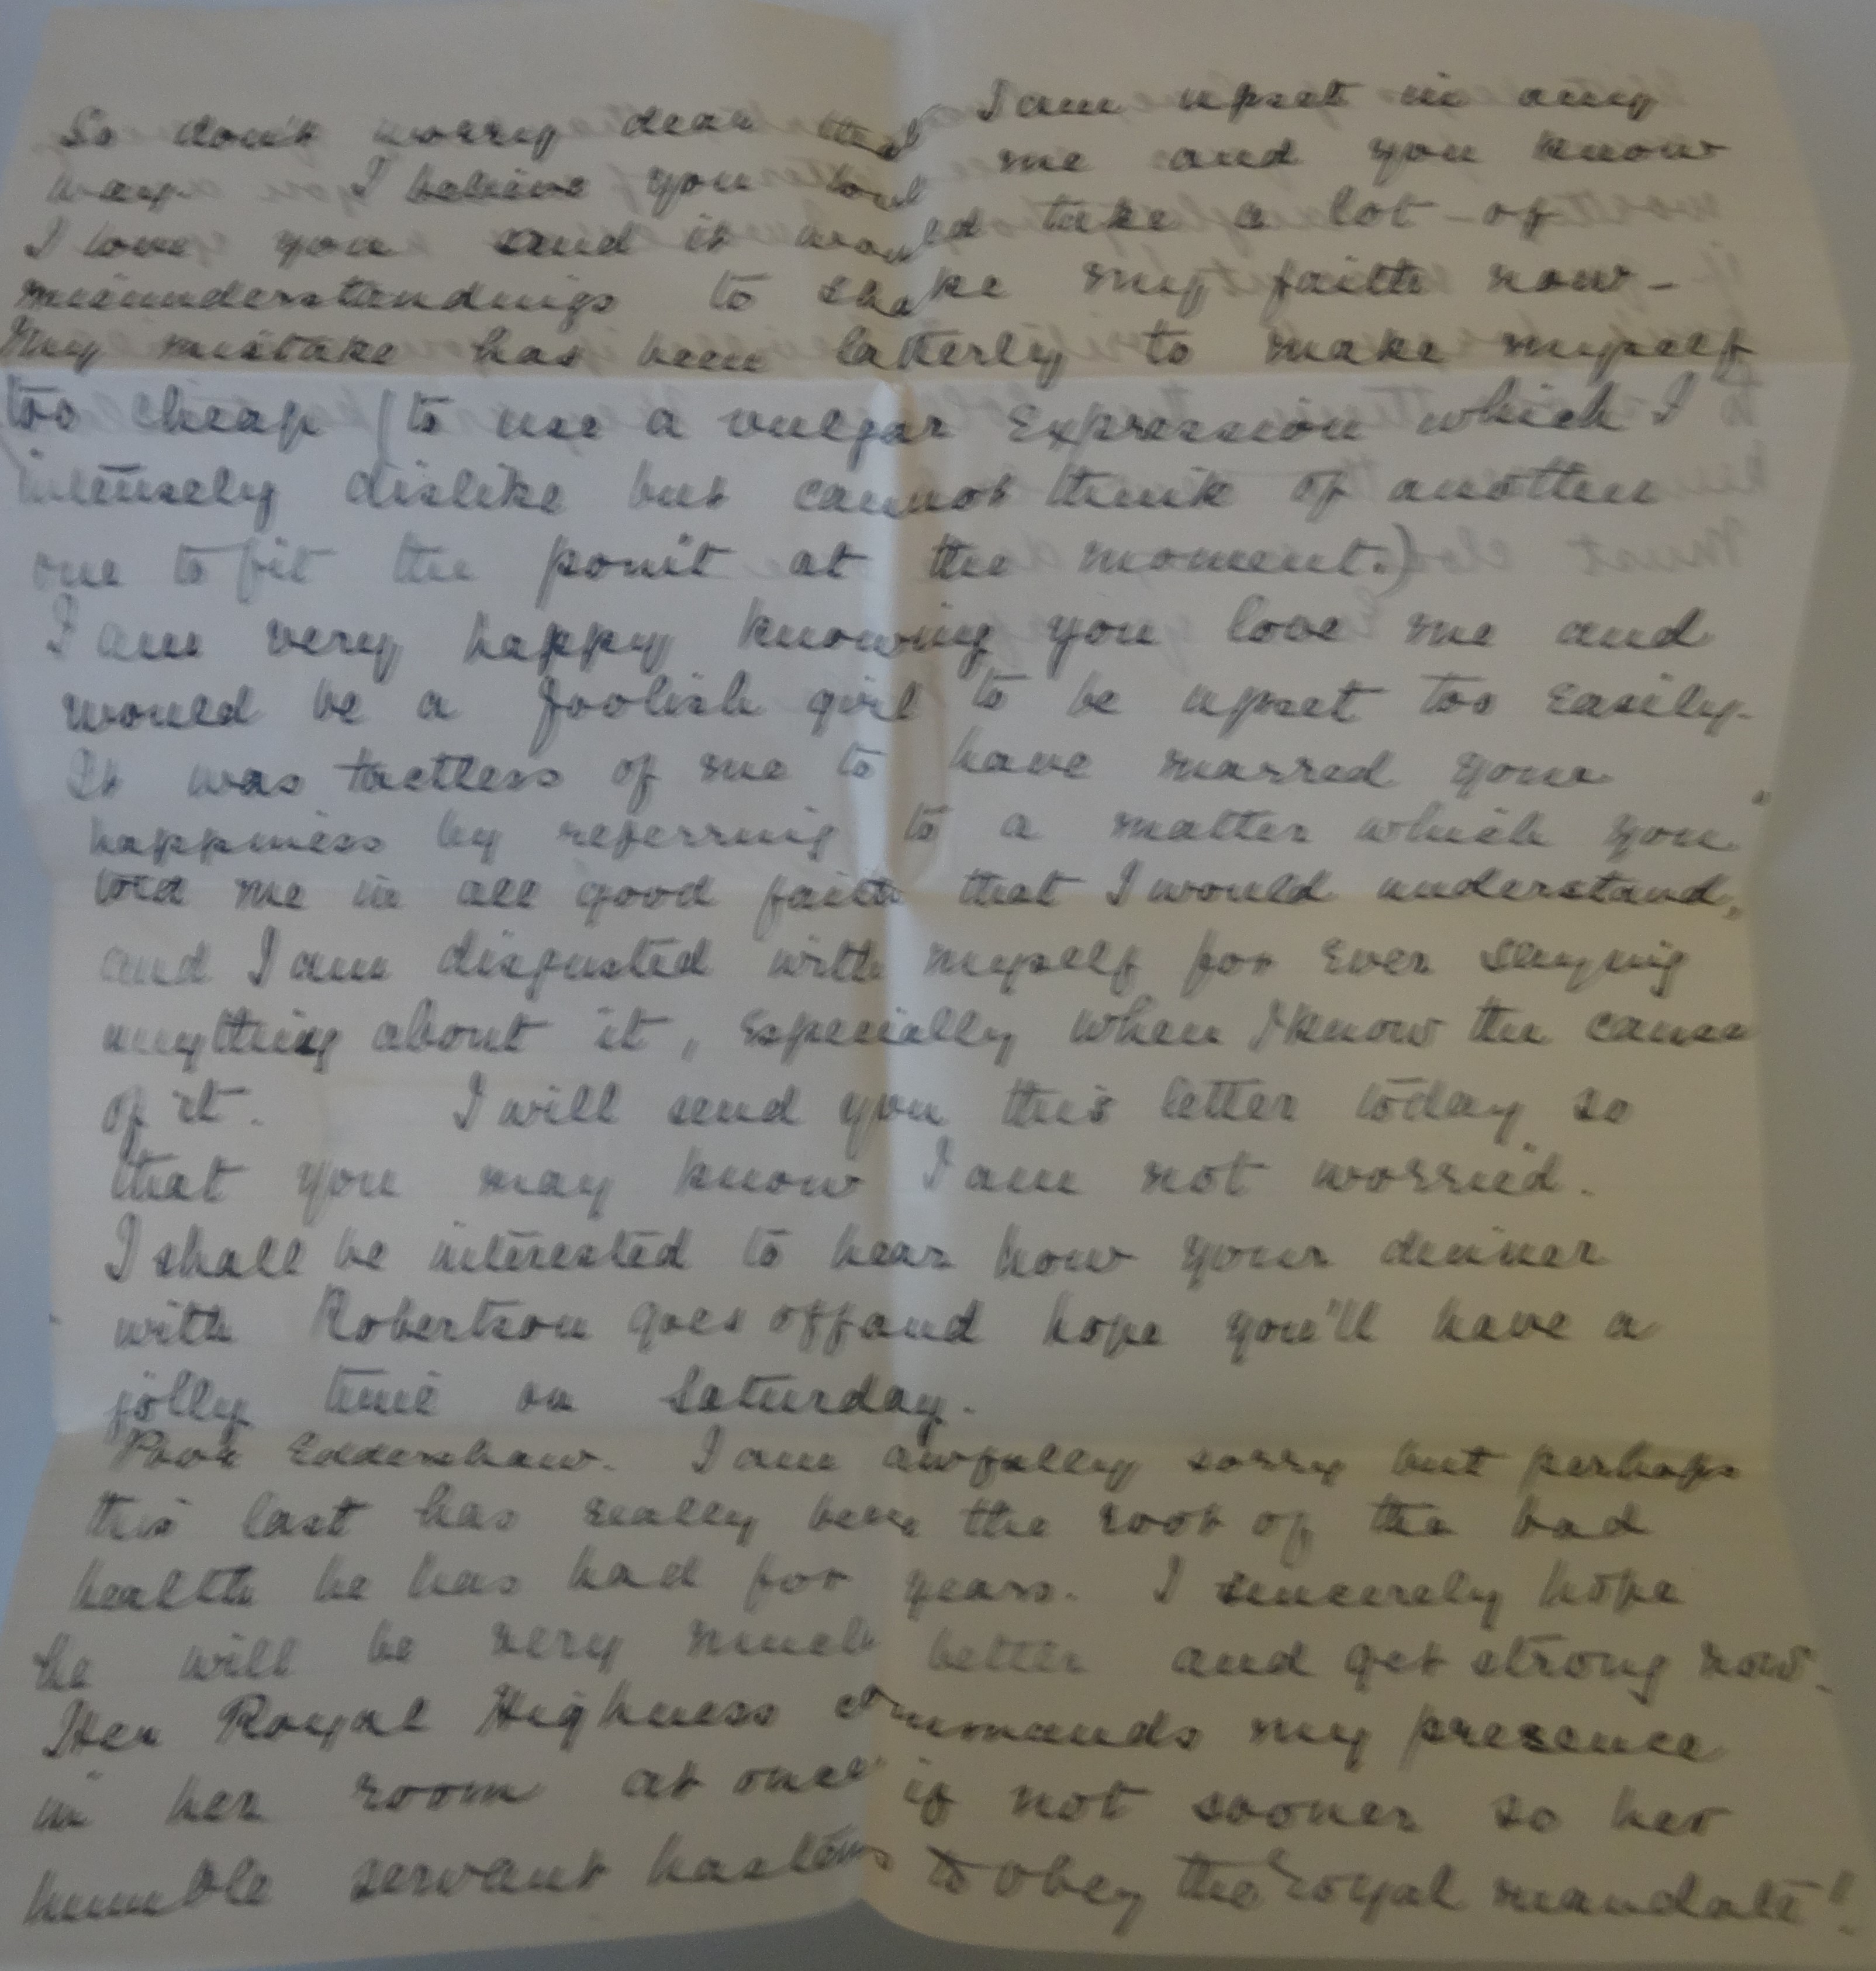 So don't worry dear that I am upset in any
way. I believe you love me and you know
I love you and it would take a lot of
misunderstandings to shake my faith now -
My mistake has been latterly to make myself
too cheap (to use a vulgar expression which I
intensely dislike but cannot think of another
one to fit the point at the moment.)
I am very happy knowing you love me and
would be a foolish girl to be upset too easily.
It was tactless of me to have marred your
happiness by referring to a matter which you
told me in all good faith that I would understand,
and I am disgusted with myself for ever saying
anything about it, especially when I know the cause
of it. I will send you this letter today so
that you may know I am not worried.
I shall be interested to hear how your dinner
with Robertson goes off and hope you'll have a
jolly time on Saturday.
Poor Eddershaw. I am awfully sorry but perhaps
this last has really been the root of the bad
health he has had for years. I sincerely hope
he will be very much better and get strong now.
Her Royal Highness commands my presence
in her room at once if not sooner so her
humble servant hastens to obey the royal mandate!